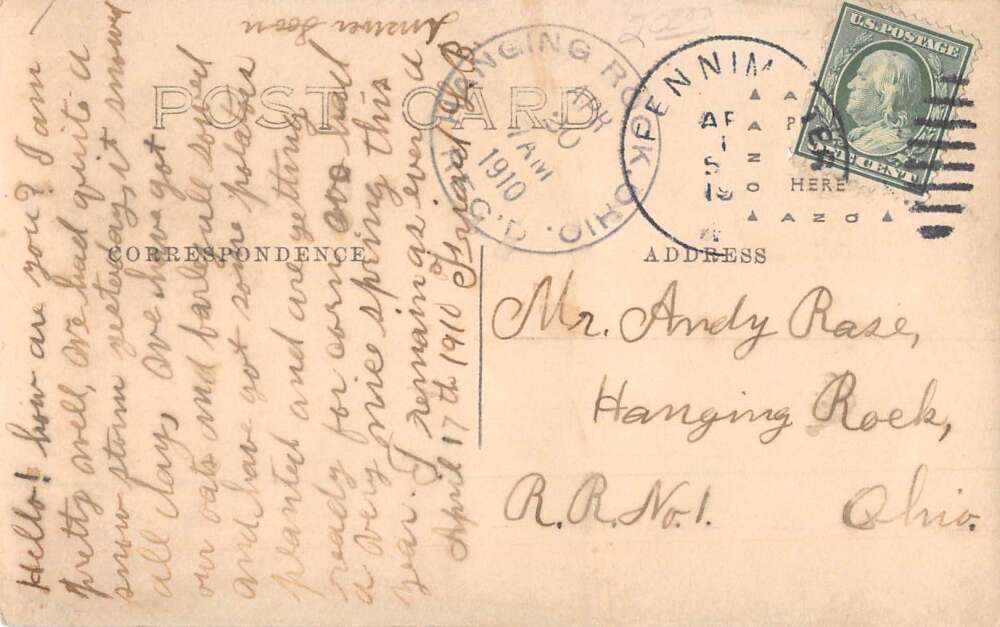 POST CARD
CORRESPONDENCE
ADDRESS
U.S. POSTAGE
ONE CENT
HANGING ROCK OHIO.
REC'D
APR
20
7 AM
1910
PENNIM
HERE
Mr. Andy Rase,
Hanging Rock,
R. R. No. 1. Ohio.
Hello! how are you? I am
pretty well, we had quite a
snow storm yesterday, it snowed
all day. We have got
our oats and barley all sowed
and have got some potatoes
planted and are getting
ready for corn. We had
a very nice spring this
year. I remain as ever a
friend
April 17th 1910
Answer Soon